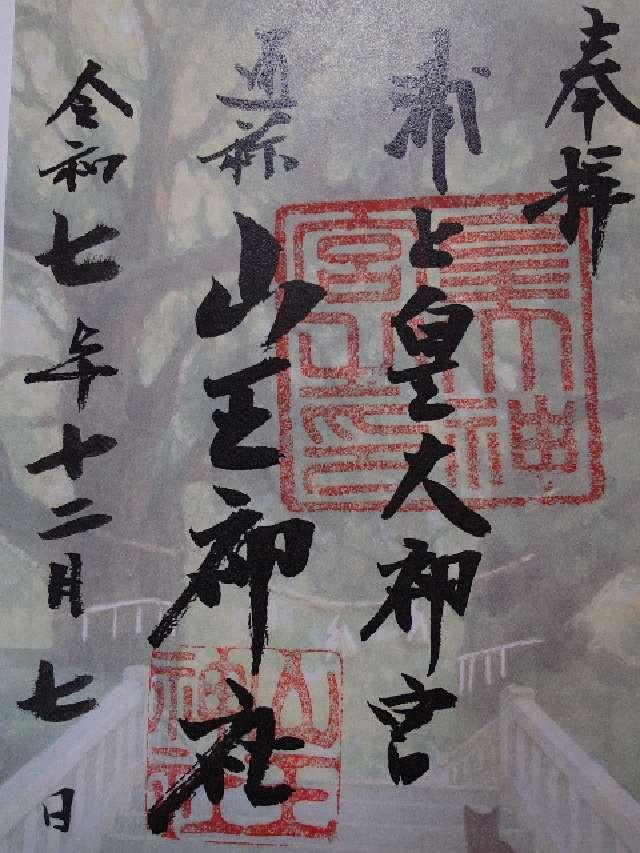 奉拝
浦上皇大神宮
通称
山王神社
令和七年十二月七日
皇大神宮之印
山王神社